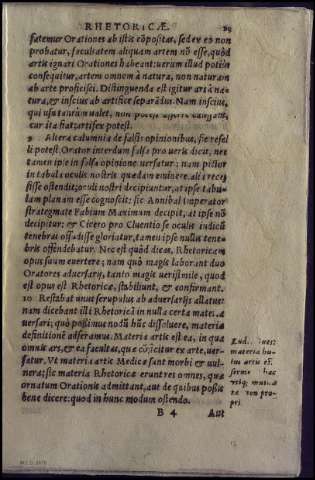 RHETORICÆ. 29
fatemur Orationes ab istis cõpositas, sed ex eo non
probatur, facultatem aliquam artem nõ esse, quòd
artis ignari Orationes habeant: uerum illud potiùs
consequitur, artem omnem à natura, non naturam
ab arte proficisci. Distinguenda est igitur ars à na-
tura, & inscius ab artifice separãdus. Nam inscius,
qui usu tantùm ualet, non potest
cur ita fiat: artifex potest.
9 Altera calumnia de falsis opinionibus, sic refel-
li potest. Orator interdum falsa pro ueris dicit, nec
tamen ipse in falsa opinione uersatur; nam pictor
in tabula oculis nostris quædam eminere, alia reces
sisse ostendit; oculi nostri decipiuntur, at ipse tabu-
lam planam esse cognoscit: sic Annibal Imperator
strategmate Fabium Maximum decipit, at ipse nõ
decipitur; & Cicero pro Cluentio se oculis iudicũ
tenebras offudisse gloriatur, tamen ipse nullis tene-
bris offendebatur. Nec est quòd dicãt, Rhetoricam
opus suum euertere; nam quò magis laborant duo
Oratores aduersarij, tanto magis uerisimile, quod
est opus est Rhetoricæ, stabiliunt, & confirmant.
10 Restabat unus scrupulus ab aduersarijs allatus:
nam dicebant illi Rhetoricã in nulla certa materia
uersari; quò possimus nodũ hũc dissoluere, materiæ
definitionẽ adferamus. Materia artis est ea, in qua
omnis ars, & ea facultas, quæ cõficitur ex arte, uer-
satur. Vt materia artis Medicæ sunt morbi & uul-
nera; sic materia Rhetoricæ erunt res omnes, quæ
ornatum Orationis admittant, aut de quibus possis
bene dicere: quod in hunc modum ostendo.
materia hu-
ius artis
B 4 Aut